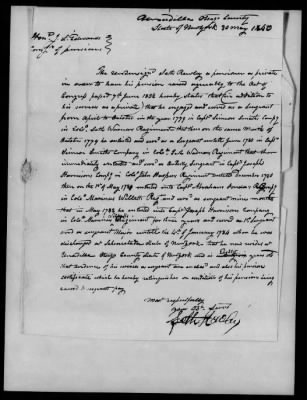 Unadilla Otsego County
State of New york 30 may 1840
Hond J. L. Edwards
Comr of pensions
The undersigned Seth Rowley a pensioner as private
in order to have his pension raised agreeably to the Act of
Congress passed 7th June 1832 hereby states that in addition to
his services as a private that he engaged and served as a sergeant
from April to October in the year 1779 in Capt Simeon Smiths Company
in Colo Seth Warners Regiment that then on the same Month of
October 1779 he entered and served as a sergeant until June 1780 in Capt
Simeon Smiths Company in Colo Seth Warners Regiment that then
immediately entered and served as orderly sergeant in Capt Joseph
Harrisons Compy in Colo John Harpers Regiment until December 1780
then on the 1st of May 1781 entered into Capt Abraham
in Colo Marinus Willetts Regt and served as sergeant nine months
that in May 1782 he entered into Capt Joseph Harrisons Company
in Colo Marinus Willetts Regiment for two years and served as
and served as sergeant Major until the 1st of January 1784 when he was
discharged at Schenectada State of New york that he now resides at
Unadilla Otsego County State of New york and is years old
that evidence of his service as sergeant are on and also his pension
certificate which he hereby relinquishes on condition of his pension being
raised to sergeants pay
Most respectfully
your Obt Servt
Seth Rowley